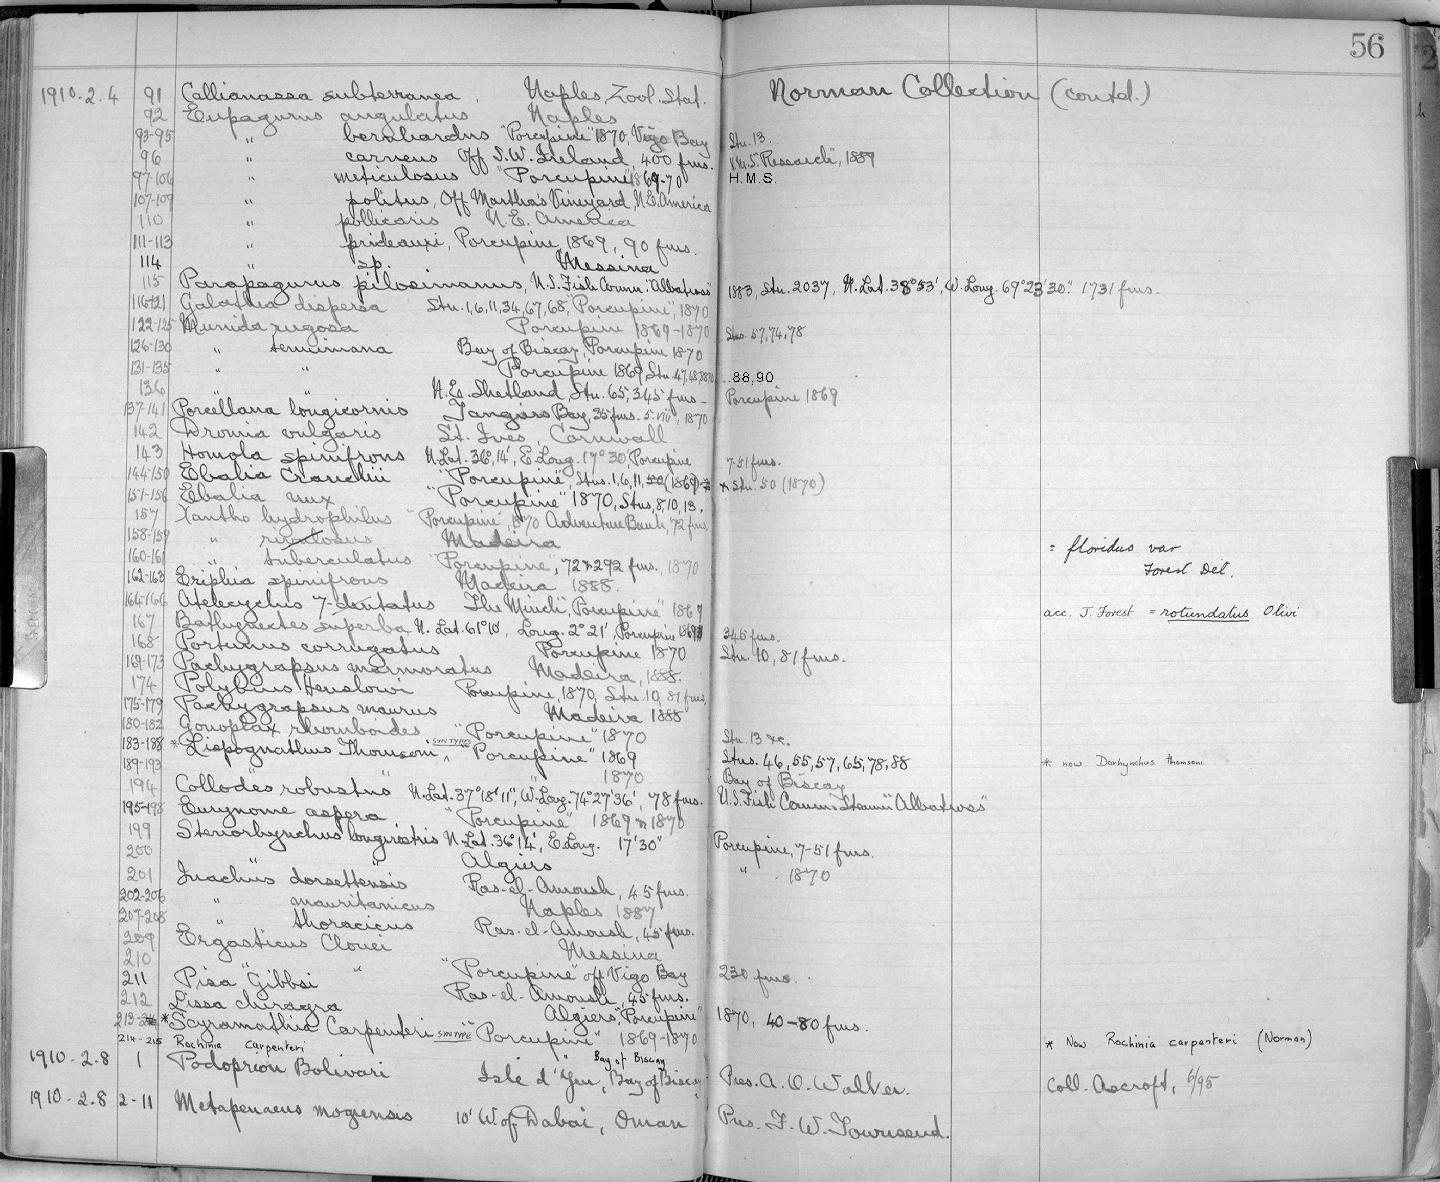 56
1910.2.4 91 Callianassa subterranea. Naples, Zool. Stat. Norman Collection (contd.)
92 Eupagurus angulatus Naples
93-95 " bernhardus "Porcupine" 1870, Vigo Bay Stn. 13.
96 " carneus Off S.W. Ireland, 400 fms. "Research", 1889
97-106 " meticulosus "Porcupine" 1869-70 H.M.S.
107-109 " politus, Off Martha's Vineyard, N.E. America
110 " pollicaris N.E. America
111-113 " prideauxi, Porcupine, 1869, 90 fms.
114 " sp. Messina
115 Parapagurus pilosimanus, U.S. Fish Comm. "Albatross" 1883, Stn. 2037, N. Lat. 38°53', W. Long. 69°23'30". 1731 fms.
116-121 Galathea dispersa Stn. 1, 6, 11, 34, 67, 68, "Porcupine", 1870
122-125 Munida rugosa Porcupine 1869-1870 Stns. 57, 74, 78
126-130 " tenuimana Bay of Biscay, Porcupine 1870
131-135 " " Porcupine 1869, Stn. ..88,90
136 " N. E. Shetland, Stn. 65, 345 fms. Porcupine 1869
137-141 Porcellana longicornis Tangiers Bay, 35 fms. 1870
142 Dromia vulgaris St. Ives, Cornwall
143 Homola spinifrons N. Lat. 36°,14', E. Long. 17°30', Porcupine 7-51 fms.
144-150 Ebalia Cranchii "Porcupine", Stns. 1, 6, 11, 50 (1869) * Stn. 50 (1870)
151-156 Ebalia nux "Porcupine" 1870, Stns, 8, 10, 13.
157 Xantho hydrophilus "Porcupine", 1870 Adventure Bank, 72 fms
158-159 " rivulosus Madeira = floridus var
Forest Det.
160-161 " tuberculatus "Porcupine, 72 & 292 fms, 1870
162-163 Eriphia spinifrons Madeira 1888.
164-166 Atelecyclus 7-dentatus The Minch, "Porcupine" 1869 acc. J. Forest = rotundatus Olivi
167 Bathynectes superba N. Lat. 61°10', Long. 2°21', Porcupine 1869 345 fms.
168 Portunus corrugatus Porcupine 1870 Stn. 10, 81 fms.
169-173 Pachygrapsus marmoratus Madeira, 1888.
174 Polybius Henslowi Porcupine, 1870, Stn. 10, 81 fms,
175-179 Pachygrapsus maurus Madeira 1888
180-182 Gonoplax rhomboides "Porcupine" 1870 Stn. 13 &c.
183-188 *Lispognathus Thomsoni, SYNTYPES "Porcupine" 1869 Stns. 46, 55, 57, 65, 78, 88 * now Dorhynchus thomsoni
189-193 " " 1870 Bay of Biscay
194 Collodes robustus N. Lat. 37°18'11", W. Long. 74°27'36', 78 fms. U.S. Fish Comm. Steamer "Albatross"
195-198 Eurynome aspera "Porcupine" 1869 & 1870
199 Stenorhynchus longirostris N. Lat. 36°14', E. Long. 17'30" Porcupine, 7-51 fms.
200 " " Algiers " 1870
201 Inachus dorsettensis Ras-el-Amoush, 45 fms.
202-206 " mauritanicus Naples 1887
207-208 " thoracicus Ras-el-Amoush, 45 fms.
209 Ergasticus Clouei Messina
210 " " "Porcupine" off Vigo Bay 230 fms.
211 Pisa Gibbsi Ras-el-Amoush, 45 fms.
212 Lissa chiragra Algiers, "Porcupine" 1870, 40-80 fms.
213- *Scyramathia Carpenteri SYNTYPE "Porcupine" 1869-1870 * Now Rochinia carpenteri (Norman)
214-215 Rochinia carpenteri Bay of Biscay
1910-2.8 1 Podoprion Bolivari Isle d'Yeu, Bay of Biscay Pres. A. O. Walker. Coll. Ascroft, 6/95
1910-2.8 2-11 Metapenaeus mogiensis 10' W. of Dabai, Oman Pres. F. W. Townsend.